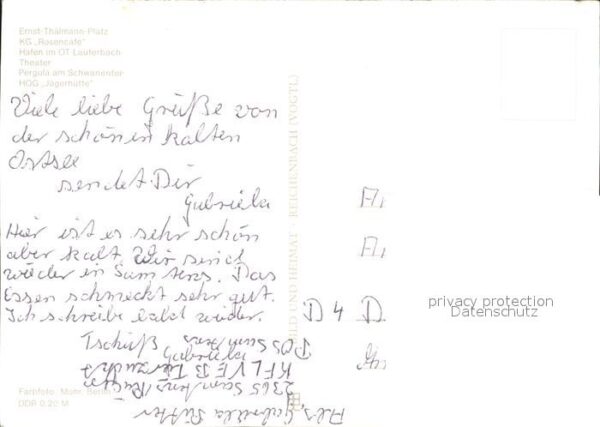 Ernst-Thälmann-Platz
KG „Rosencafé“
Hafen im OT-Lauterbach-
Theater
Pergula am Schwanenteich
HOG „Jägerhütte“
Viele liebe Grüße von
der schönen kalten
Ostsee
sendet Dir
Gabriela
Hier ist es sehr schön
aber kalt. Wir sind
wieder in Samtens. Das
Essen schmeckt sehr gut.
Ich schreibe bald wieder.
Tschüß
Gabriela
BILD UND HEIMAT · REICHENBACH (VOGTL)
D 4 D.
privacy protection
Datenschutz
Farbfoto: Mohr, Berlin
DDR 0,20 M
Abs. Gabriela
2365 Samtens/Rügen
KFL VEB
POS Samtens